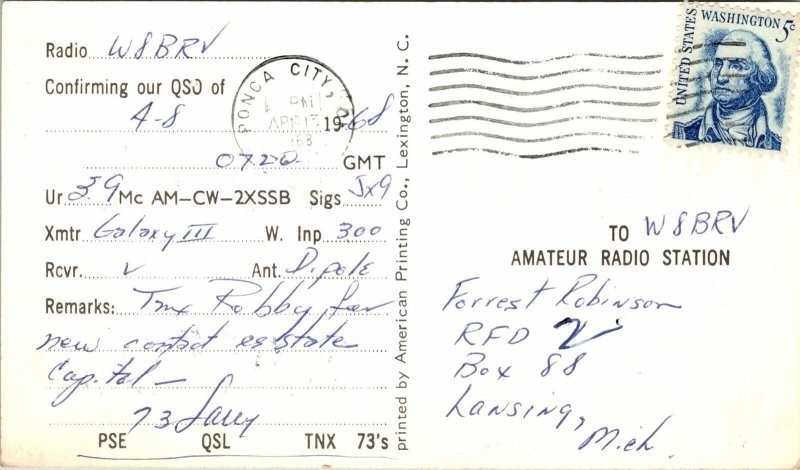 Radio W8BRV
Confirming our QSO of
4-8 1968
0720 GMT
Ur 3.9 Mc AM–CW–2XSSB Sigs 5x9
Xmtr Galaxy III W. Inp 300
Rcvr. v Ant. Dipole
Remarks: Tnx Robby for
new contact es state
Capital –
73 Larry
PSE QSL TNX 73's
printed by American Printing Co., Lexington, N. C.
PONCA CITY,
PM
APR
1968
UNITED STATES
WASHINGTON 5c
TO W8BRV
AMATEUR RADIO STATION
Forrest Robinson
RFD 2
Box 88
Lansing,
Mich.